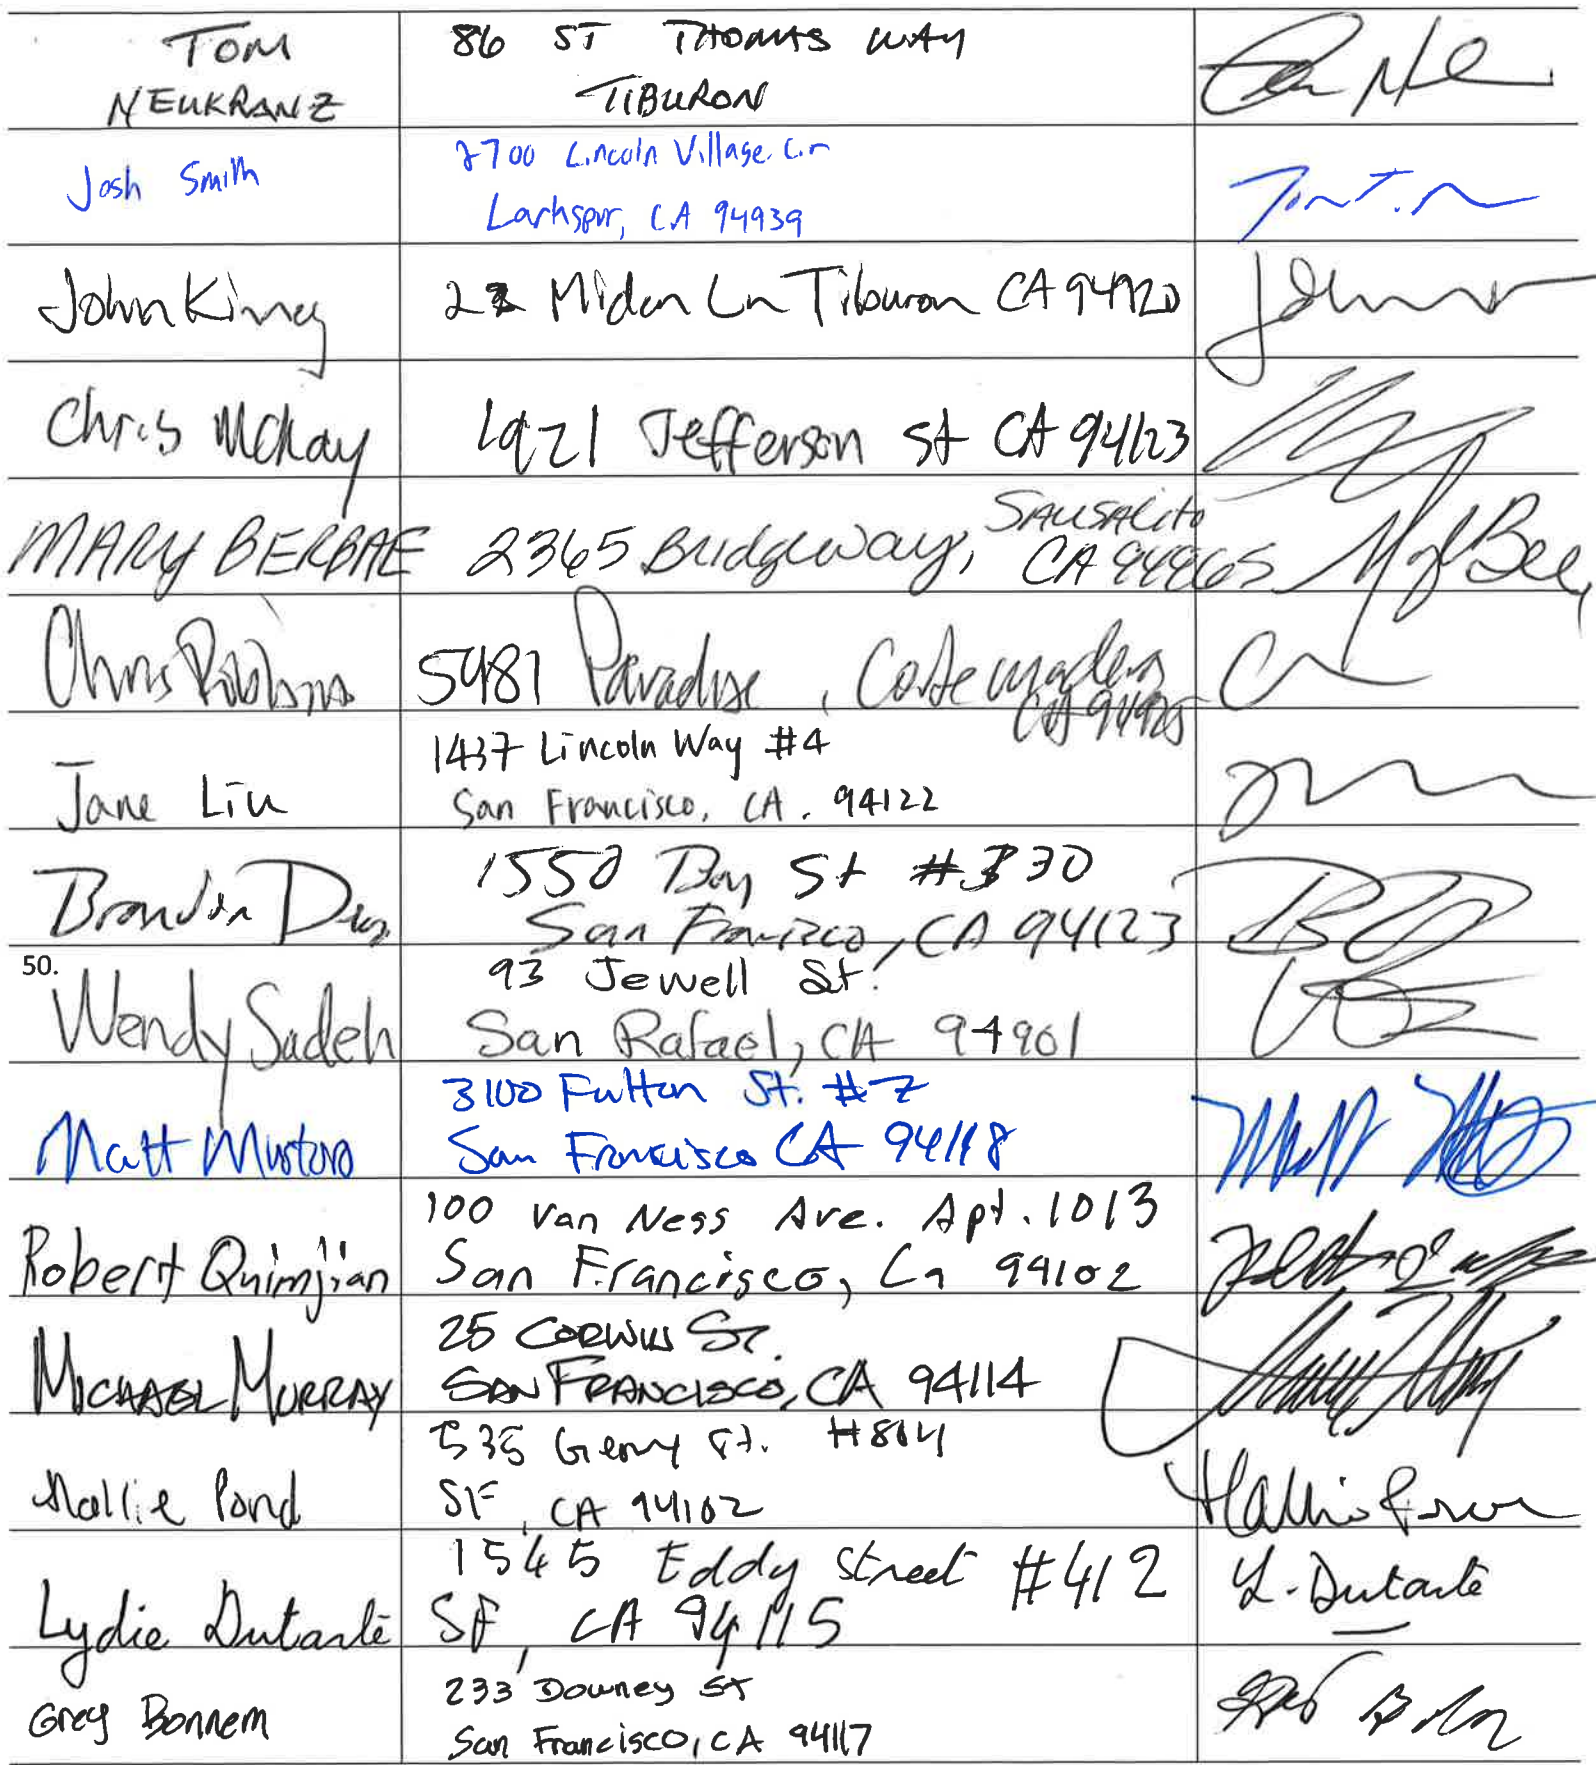 TOM
NEUKRANZ
86 ST THOMAS WAY
TIBURON
Josh Smith
2700 Lincoln Village Cir
Larkspur, CA 94939
John Kinney
2 Midon Ln Tiburon CA 94920
Chris McKay
1921 Jefferson St CA 94123
MARY BERBAE
2365 Bridgeway, SAUSALITO
CA 94965
Chris Robbins
5481 Paradise, Corte madera
CA 94925
Jane Liu
1437 Lincoln Way #4
San Francisco, CA. 94122
Brandon
1550 Bay St #330
San Francisco, CA 94123
50.
Wendy Sadeh
93 Jewell St.
San Rafael, CA 94901
Matt Mustaro
3100 Fulton St. #7
San Francisco CA 94118
Robert Quimjian
100 Van Ness Ave. Apt. 1013
San Francisco, Ca 94102
MICHAEL MURRAY
25 CORWIN ST.
SAN FRANCISCO, CA 94114
Hallie Pond
535 Geary St. #804
SF, CA 94102
Lydie Dutarte
1545 Eddy Street #412
SF, CA 94115
L. Dutarte
Greg Bonnem
233 Downey St
San Francisco, CA 94117